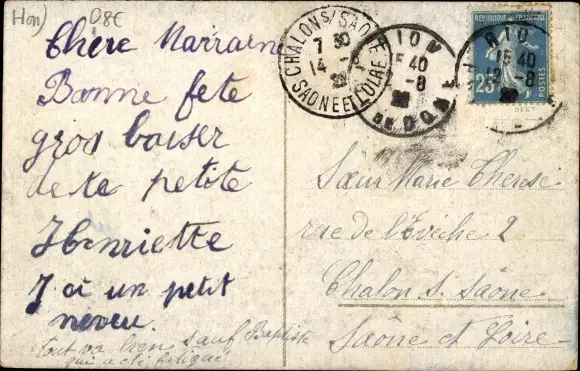 Hon) 08€
Chère Marraine
Bonne fete
gros baiser
de ta petite
Henriette
J ai un petit
neveu.
tout va bien sauf Baptiste
qui a été fatigué
CHALON S/SAONE
7 30
14 -8
SAONE ET LOIRE
RIOM
15 40
12 -8
DE DOME
RIO
15 40
12 -8
REPUBLIQUE FRANÇAISE
25
POSTES
Sœur Marie Therese
rue de l'Evêché 2
Chalon s. Saône
Saône et Loire